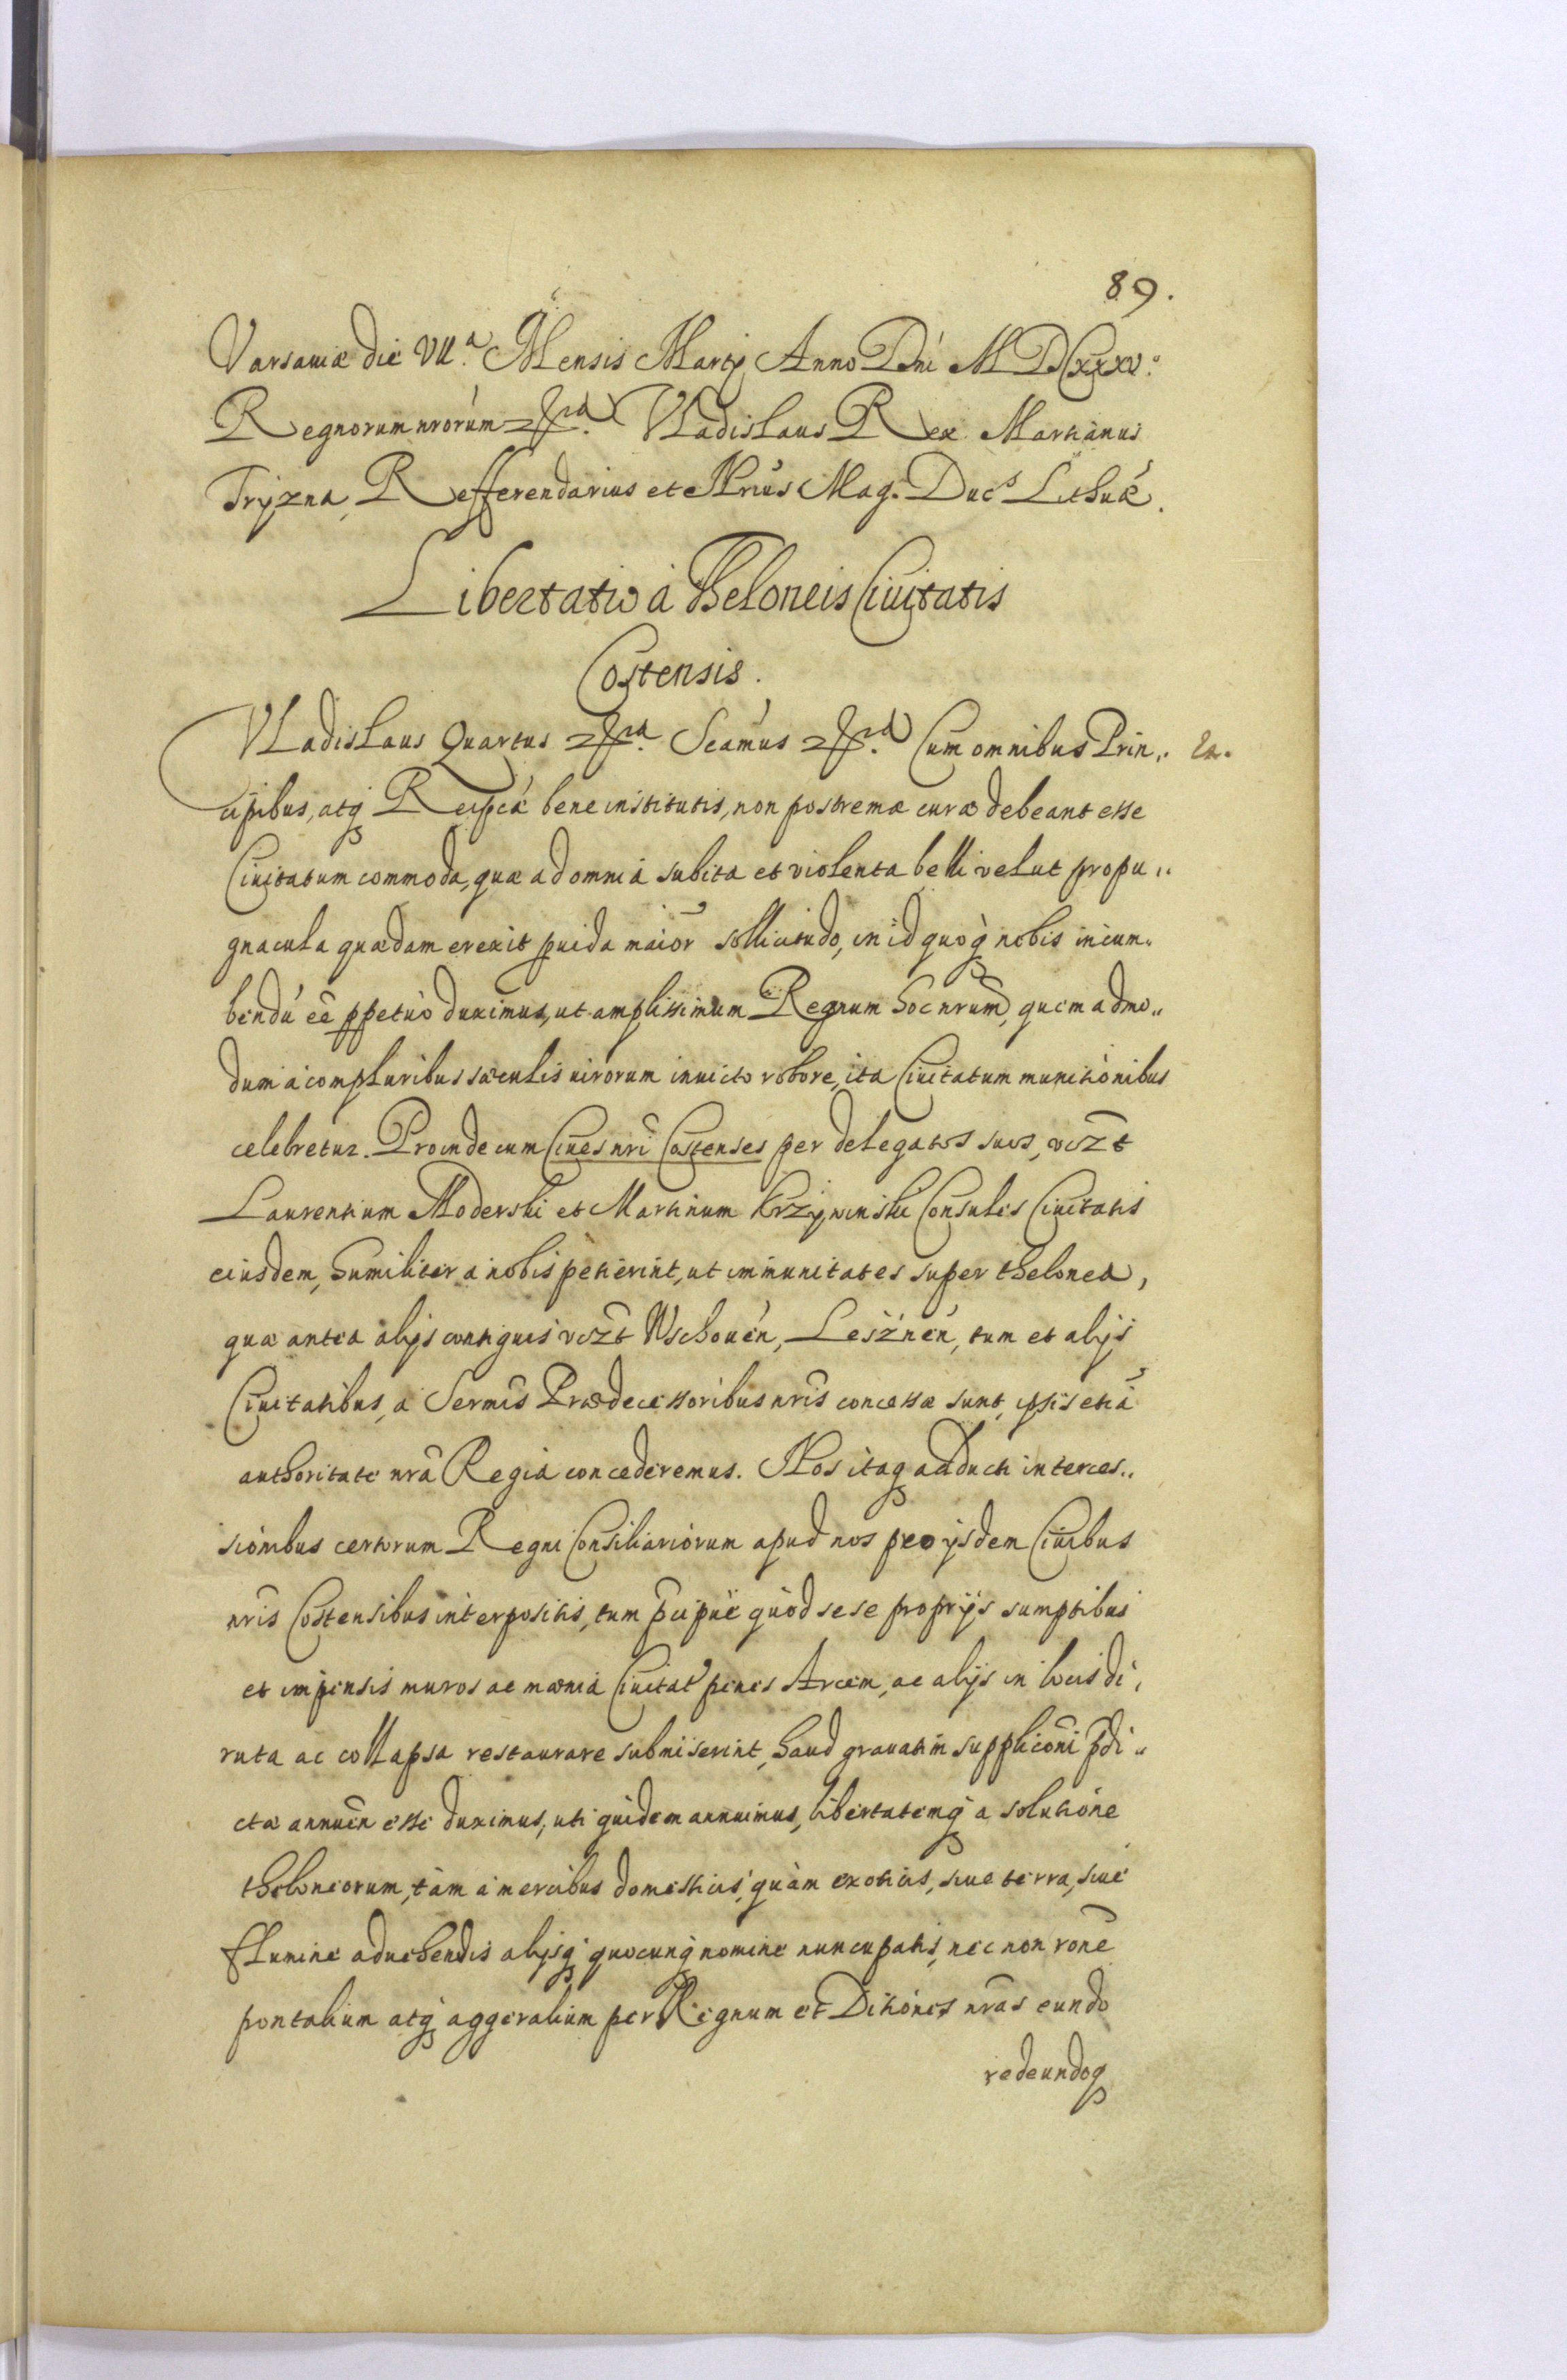 89.
Varsaviæ die VII.ª Mensis Martij Anno Dni M DCxxxv.º
Regnorum nrorum &ra. Vladislaus Rex. Martianus
Tryzna, Refferendarius et Nrius Mag. Duc.s Lithuæ.
Libertatio à Theloneis Ciuitatis
Costensis.
Vladislaus Quartus &ra. Scamus &ra. Cum omnibus Prin„
cipibus, atq Reipcæ bene institutis, non postremæ curæ debeant esse
Ciuitatum commoda, quæ ad omnia subita et violenta belli velut propu„
gnacula quædam erexit puida maior sollicitudo, in id quoq nobis incum„
bendu ee ppetuo duximus, ut amplissimum Regnum hoc nrum, quemadmo„
dum à compluribus sæculis uirorum inuicto robore, ita Ciuitatum munitionibus
celebretur. Proinde cum Ciues nri Costenses per delegatos suos, vizt
Laurentium Moderski et Martinum Krzywinski Consules Ciuitatis
eiusdem, humiliter a nobis petierint, ut immunitates super thelonea,
quæ antea alijs contiguis vizt Wschouen, Leśznen, tum et alijs
Ciuitatibus, a Sermis Prædecessoribus nris concessæ sunt, ipsis etiã
authoritate nra Regia concederemus. Nos itaq adducti interces„
sionibus certorum Regni Consiliariorum apud nos pro ijsdem Ciuibus
nris Costensibus interpositis, tum pcipue quòd sese proprijs sumptibus
et impensis muros ac mænia Ciuitat penes Arcem, ac alijs in locis di„
ruta ac collapsa restaurare submiserint, haud grauatim suppliconi pdi„
ctæ annuen esse duximus, uti quidem annuimus, libertatemq a solutione
theloneorum, tàm a mercibus domesticis, quàm exoticis, siue terra, siue
flumine aduehendis alijsq quocunq nomine nuncupatis, nec non rone
pontalium atq aggeralium per Regnum et Ditiones nras eundo
redeundoq